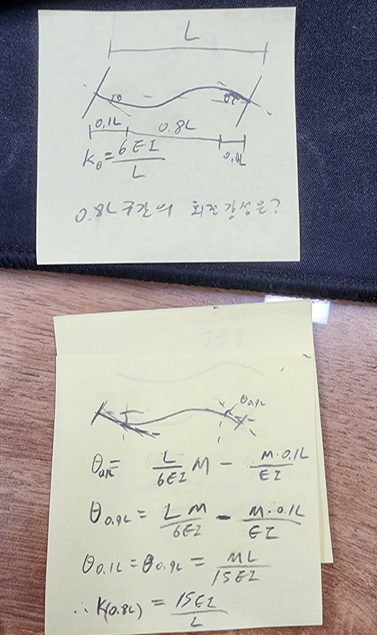 L
θ θL
0.1L 0.8L 0.1L
Kθ = 6EI/L
0.8L 구간의 회전강성은?
θ0.9L
θ0.1L = L/6EI M - M·0.1L/EI
θ0.9L = LM/6EI - M·0.1L/EI
θ0.1L = θ0.9L = ML/15EI
∴ K(0.8L) = 15EI/L